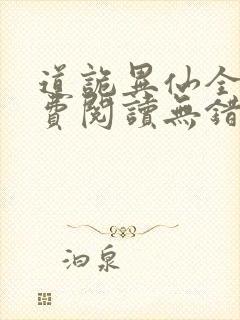 道詭異仙全
費閱讀無錯
泊泉